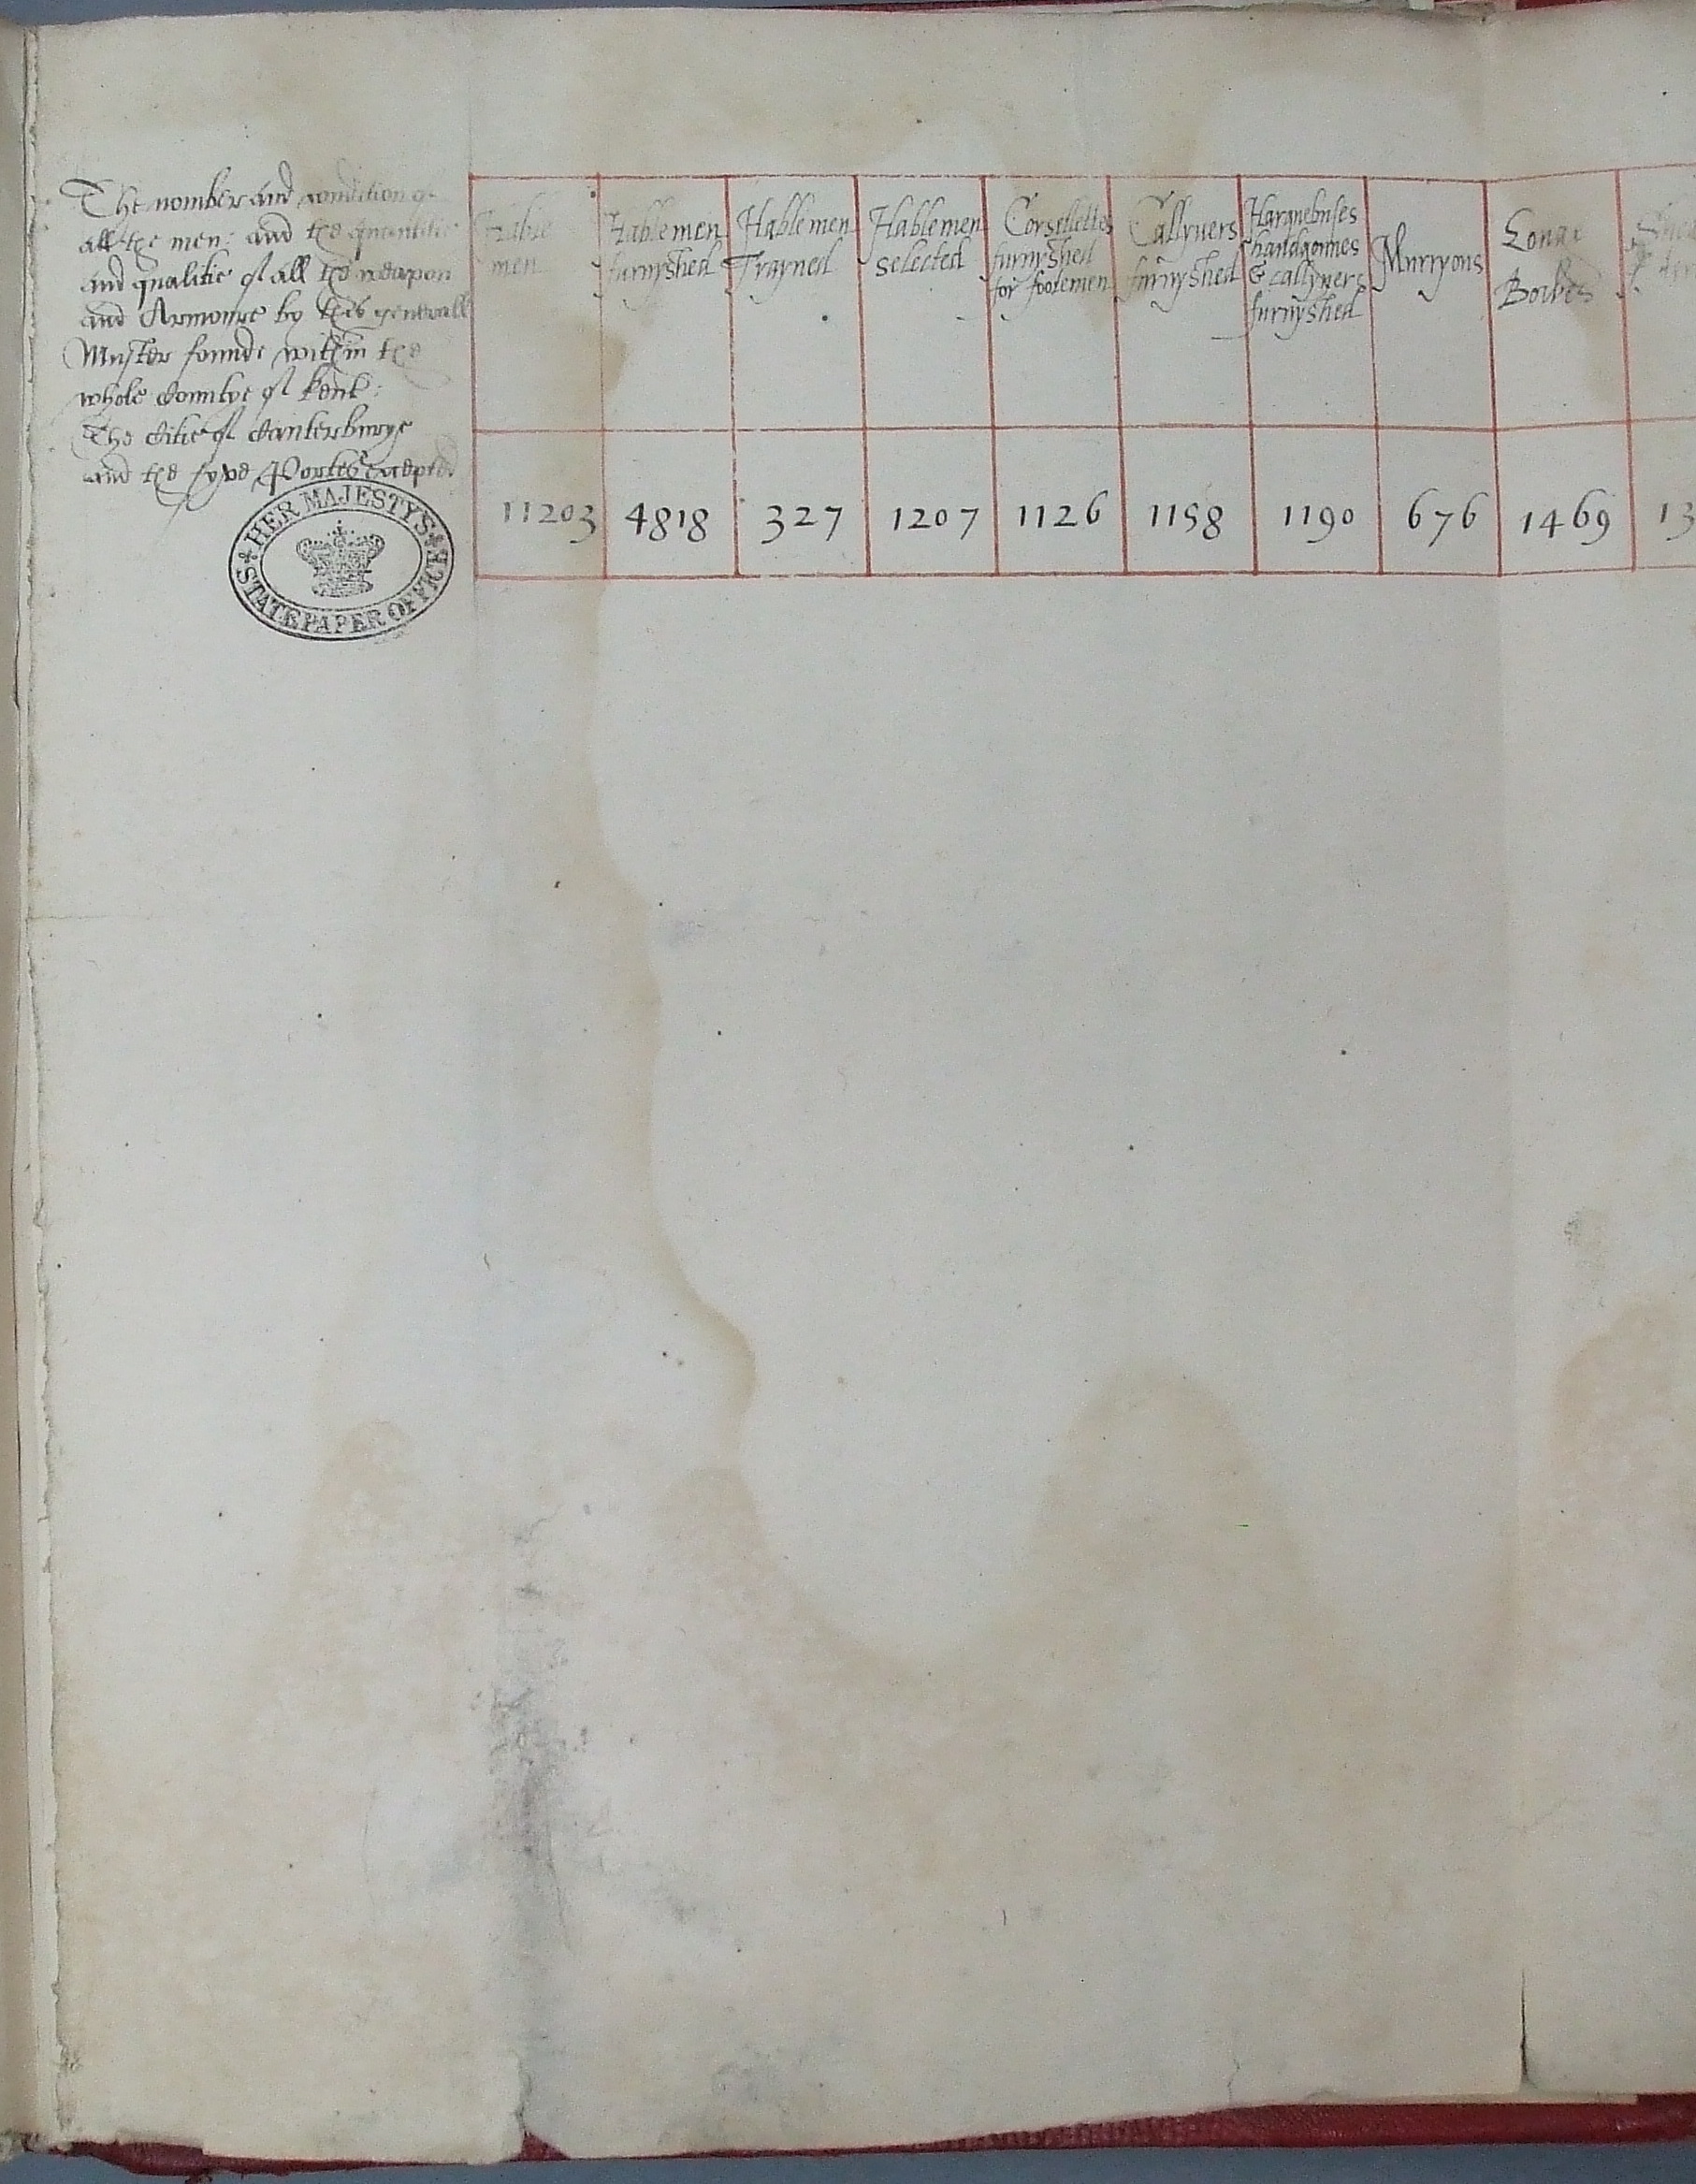 The nomber and condition of
all the men: and the quantitie
and qualitie of all the weapon
and Armoure by this generall
Muster founde within the
whole Countye of Kent:
The Citie of Canterburye
and the fyve Portes excepted
Hable
men
Hable men
furnyshed
Hable men
Trayned
Hable men
selected
Corsellettes
furnyshed
for footemen
Callyvers
furnyshed
Harquebuses
handgonnes
& callyvers
furnyshed
Murryons
Longe
Bowes
11203 4818 327 1207 1126 1158 1190 676 1469 13
HER MAJESTYS
STATE PAPER OFFICE